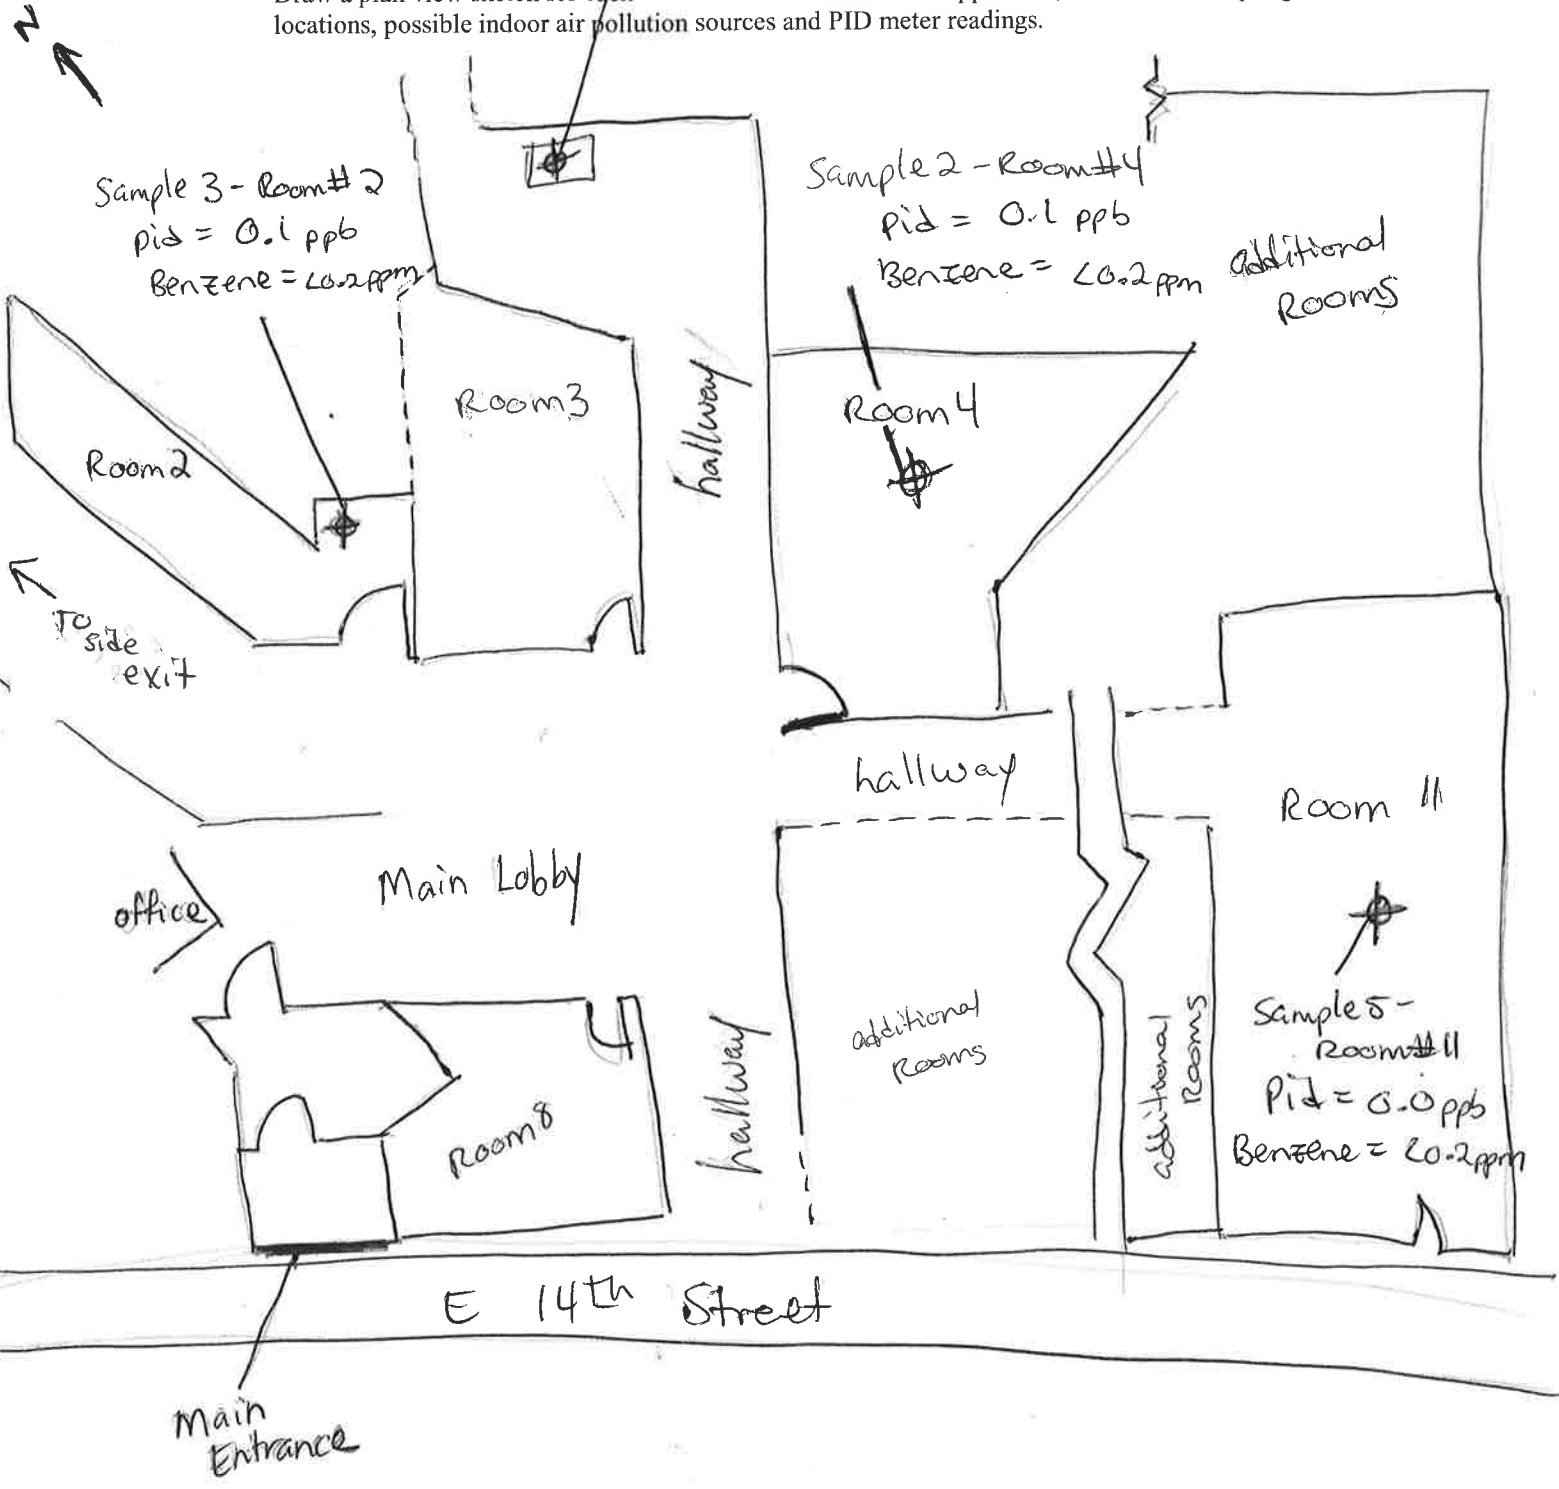 locations, possible indoor air pollution sources and PID meter readings.
N
Sample 3 - Room # 2
pid = 0.1 ppb
Benzene = <0.2ppm
Sample 2 - Room #4
pid = 0.1 ppb
Benzene = <0.2ppm
additional
Rooms
Room 2
Room 3
hallway
Room 4
To
side
exit
hallway
Room 11
office
Main Lobby
additional
Rooms
hallway
additional
Rooms
Sample 5 -
Room #11
Pid = 0.0 ppb
Benzene = <0.2ppm
Room 8
E 14th Street
Main
Entrance